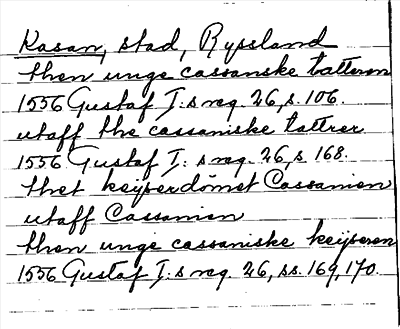 Kasan, stad, Ryssland
then unge cassanske tatteren
1556 Gustaf I:s reg. 26, s. 106.
utaff the cassaniske tattrer
1556 Gustaf I:s reg. 26, s. 168.
thet keyserdömet Cassanien
utaff Cassanien
then unge cassaniske keyseren
1556 Gustaf I:s reg. 26, ss. 169, 170.